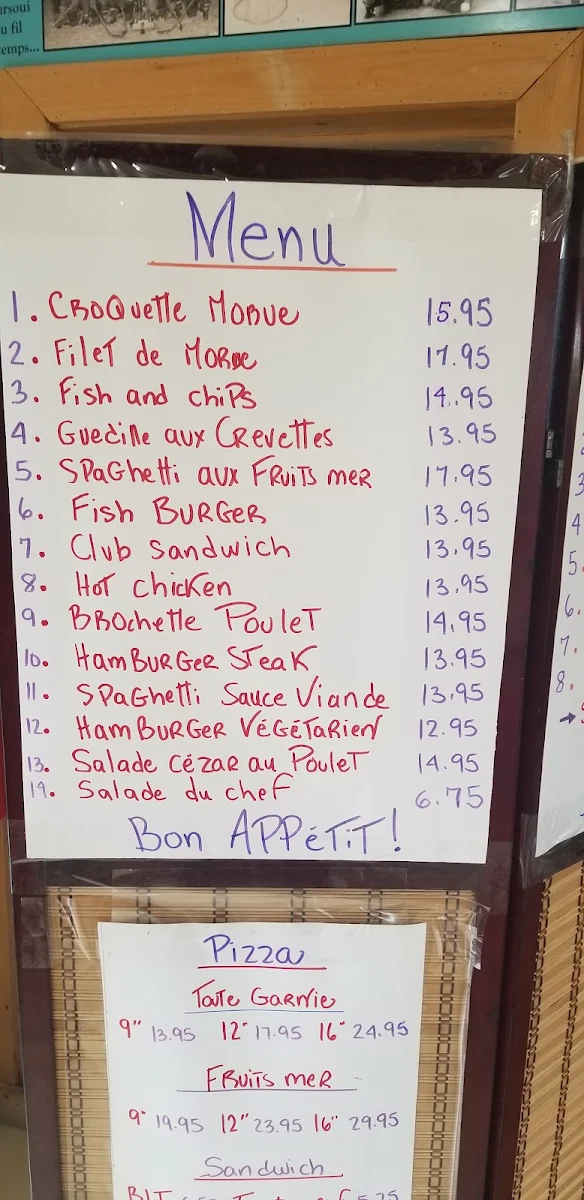 rsoui
u fil
temps...
Menu
1. Croquette Morue 15.95
2. Filet de Morue 17.95
3. Fish and chips 14.95
4. Guedille aux Crevettes 13.95
5. Spaghetti aux Fruits mer 17.95
6. Fish Burger 13.95
7. Club Sandwich 13.95
8. Hot chicken 13.95
9. Brochette Poulet 14.95
10. Hamburger Steak 13.95
11. Spaghetti Sauce Viande 13.95
12. Hamburger Végétarien 12.95
13. Salade Cézar au Poulet 14.95
14. Salade du chef 6.75
Bon Appétit!
Pizza
Toute Garnie
9" 13.95 12" 17.95 16" 24.95
Fruits mer
9" 19.95 12" 23.95 16" 29.95
Sandwich
3
4
5.
6.
7.
8.